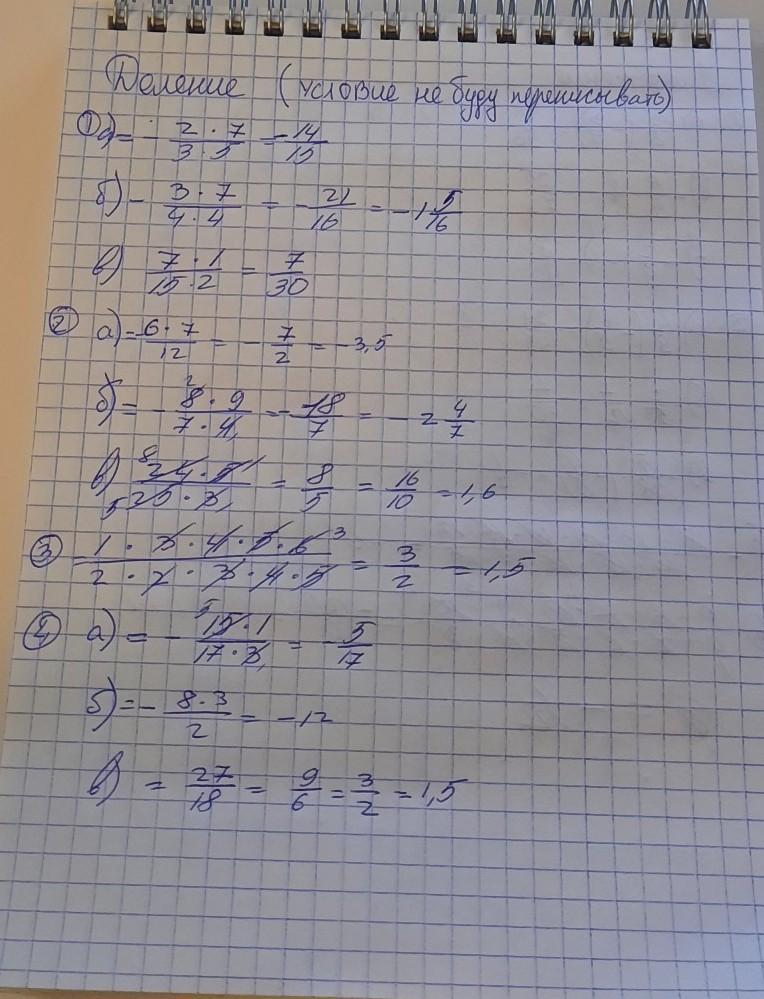 Деление (условие не буду переписывать)
① а) = - 2 · 7 / 3 · 5 = -14 / 15
б) - 3 · 7 / 4 · 4 = - 21 / 16 = - 1 5/16
в) 7 · 1 / 15 · 2 = 7 / 30
② а) = 6 · 7 / 12 = - 7 / 2 = -3,5
б) = - 8 2 · 9 / 7 · 4 1 = -18 / 7 = - 2 4/7
в) 8 24 · 5 1 / 5 25 · 3 1 = 8 / 5 = 16 / 10 = 1,6
③ = 1 · 3 · 4 · 5 · 6 3 / 2 · 2 · 3 · 4 · 5 = 3 / 2 = 1,5
④ а) = - 5 15 · 1 / 17 · 3 1 = - 5 / 17
б) = - 8 · 3 / 2 = -12
в) = 27 / 18 = 9 / 6 = 3 / 2 = 1,5